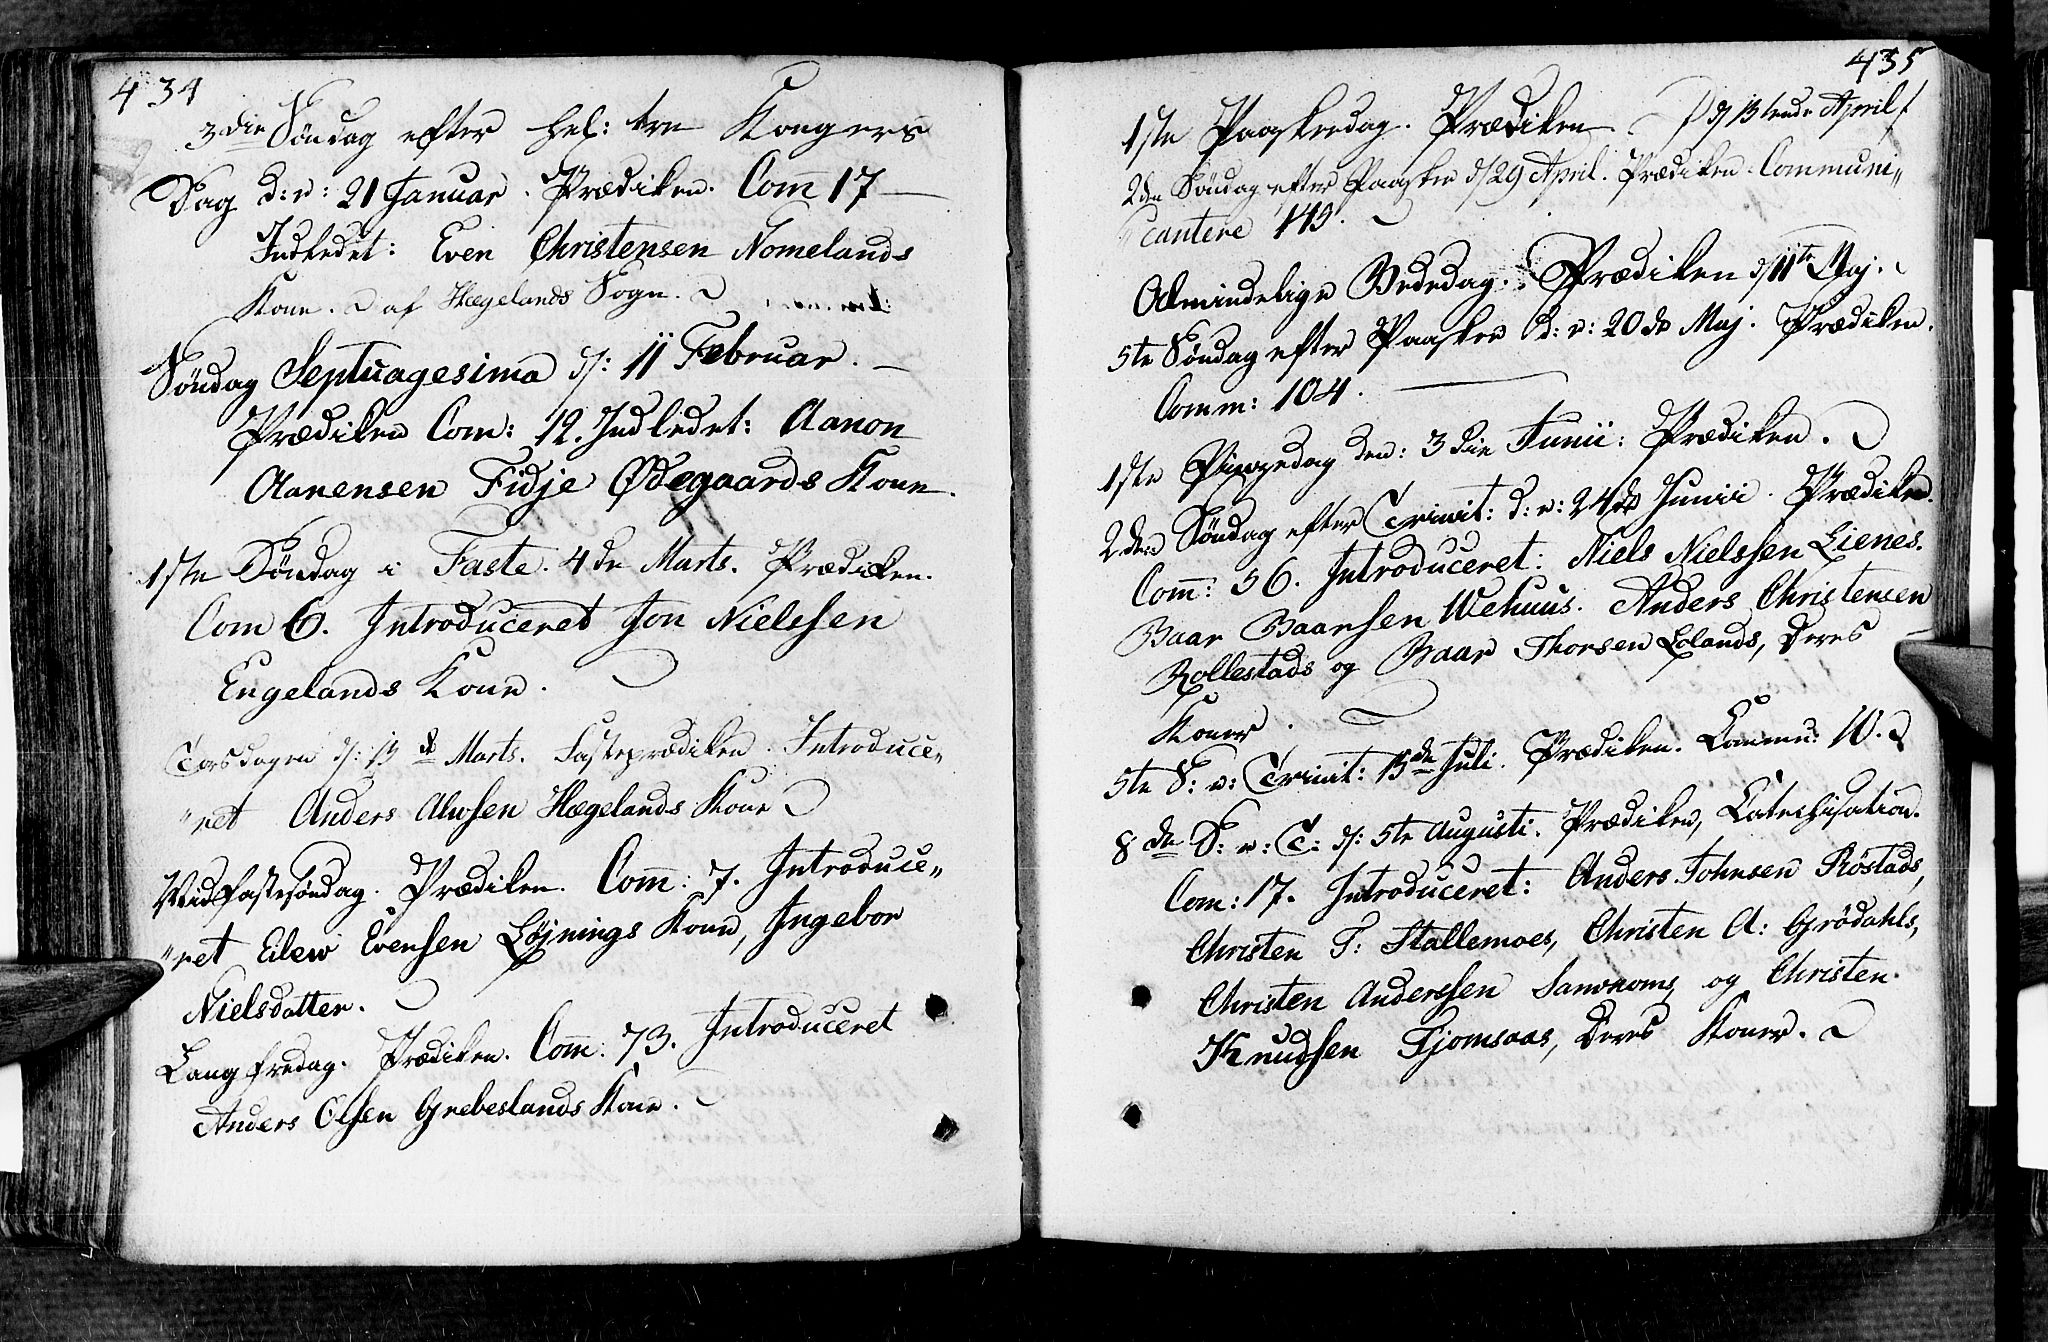 434
3die Søndag efter hel: tre Kongers
Dag d: e: 21 Januar. Prædiken. Com̄ 17 —
Indledet: Even Christensen Nomelands
Kone. af Hægelands Sogn.
Søndag Septuagesima d/: 11 Februar. —
Prædiken Com: 12. Indledet: Aanon
Aanensen Fidje Ødegaards Kone.
1ste Søndag i Faste. 4de Marts. Prædiken.
Com 6. Introduceret Jon Nielssen
Engelands Kone.
Torsdagen d/: 15de Marts. Fasteprædiken. Introduce„
„ret Anders Alwsen Hægelands Kone
Midfastesøndag. Prædiken. Com̄: 7. Introduce„
„ret Eilew Evensen Løjnings Kone, Ingebor
Nielsdatter.
Langfredag. Prædiken. Com̄: 73. Introduceret
Anders Olsen Grebeslands Kone.
435
1ste Paaskedag. Prædiken d/ 15tende April
2den Søndag efter Paaske d/29 April. Prædiken. Communi„
„cantere 149.
Almindelige Bededag. Prædiken d/11te Maj.
5te Søndag efter Paaske d: e: 20de Maj. Prædiken.
Comm: 104.
1ste Pintzedag den: 3die Junii: Prædiken.
2den Søndag efter Trinit: d: e: 24de Junii. Prædiken.
Com̄: 56. Introduceret: Niels Nielssen Lienes.
Baar Baarsen Wehuus. Anders Christensen
Rollestads og Baar Thorsen Lølands, Deres
Koner.
5te S: e: Trinit: 15de Juli. Prædiken. Commu: 10.
8de S: e: T: d/: 5te Augusti. Prædiken, Catechisation.
Com: 17. Introduceret: Anders Johnsen Røstads,
Christen T: Stallemoes, Christen A: Grødahls,
Christen Anderssen og Christen
Knudsen Fjomsaas, Deres Koner.